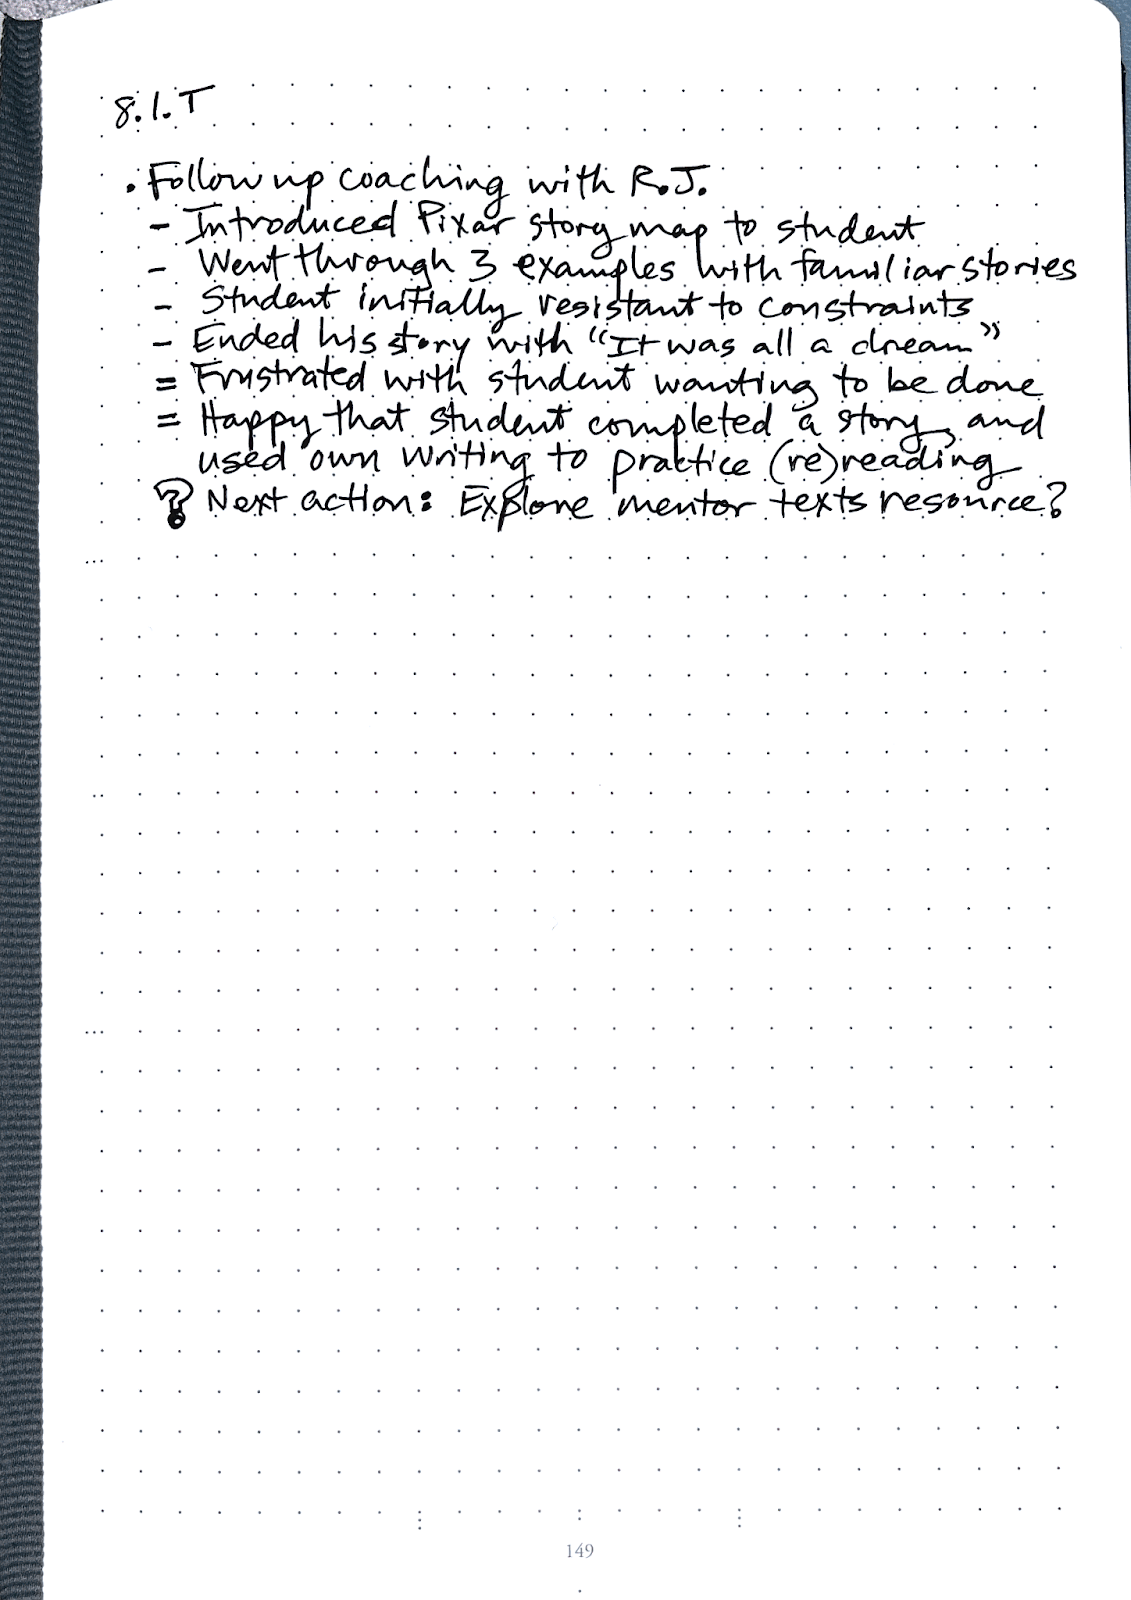 8.1.T
• Follow up coaching with R.J.
- Introduced Pixar story map to student
- Went through 3 examples with familiar stories
- Student initially resistant to constraints
- Ended his story with "It was all a dream"
= Frustrated with student wanting to be done
= Happy that student completed a story, and
used own writing to practice (re)reading
? Next action: Explore mentor texts resource?
149